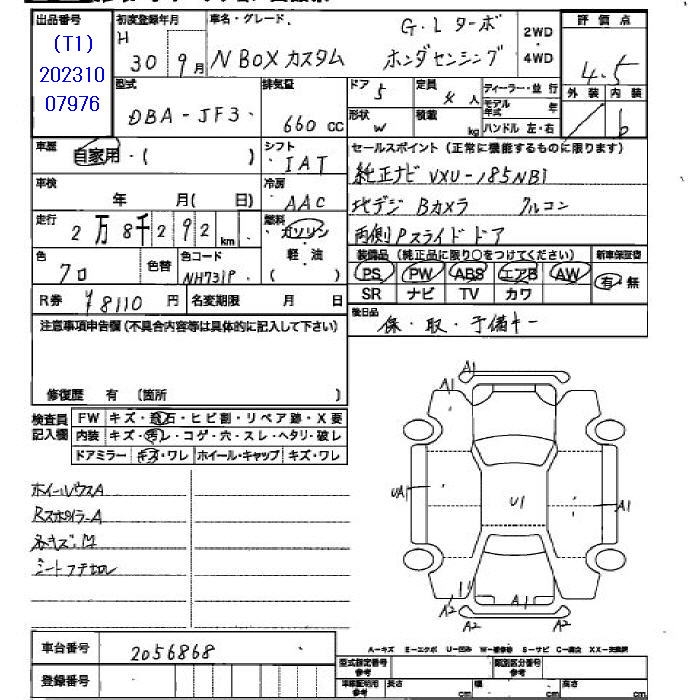 出品番号
(T1)
202310
07976
初度登録年月
H
30 9月
車名・グレード
N BOX カスタム
G・L ターボ
ホンダセンシング
2WD
4WD
評価点
4.5
外装 内装
b
型式
DBA-JF3
排気量
660 CC
ドア
5
定員
4 人
形状
W
積載
kg
ディーラー・並行
モデル年式 年
ハンドル 左・右
車歴
自家用・( )
シフト
IAT
セールスポイント(正常に機能するものに限ります)
純正ナビ VXU-185NBI
地デジ Bカメラ クルコン
両側Pスライドドア
車検
年 月( 日)
冷房
AAC
走行
2万8千292km
燃料
ガソリン
軽・油
( )
色
クロ
色替
色コード
NH731P
装備品(純正品に限り○をつけてください)
PS PW ABS エアB AW
SR ナビ TV カワ
新車保証書
有・無
R券 ¥8110 円
名変期限 月 日
後日品
保・取・予備キー
注意事項申告欄(不具合内容等は具体的に記入して下さい)
修復歴 有 (箇所 )
検査員
記入欄
FW キズ・飛石・ヒビ割・リペア跡・X要
内装 キズ・汚レ・コゲ・穴・スレ・ヘタリ・破レ
ドアミラー キズ・ワレ ホイール・キャップ キズ・ワレ
ホイールハウスA
Rスポイラー A
シートフテセル
A1
A1
UA1
U1
A1
A1
A2
A2
車台番号
2056868
登録番号
A-キズ E-エクボ U-凹み W-補修跡 S-サビ C-腐食 XX-交換済
型式指定番号
類別区分番号
車庫証明用参考
長さ cm
幅 cm
高さ cm